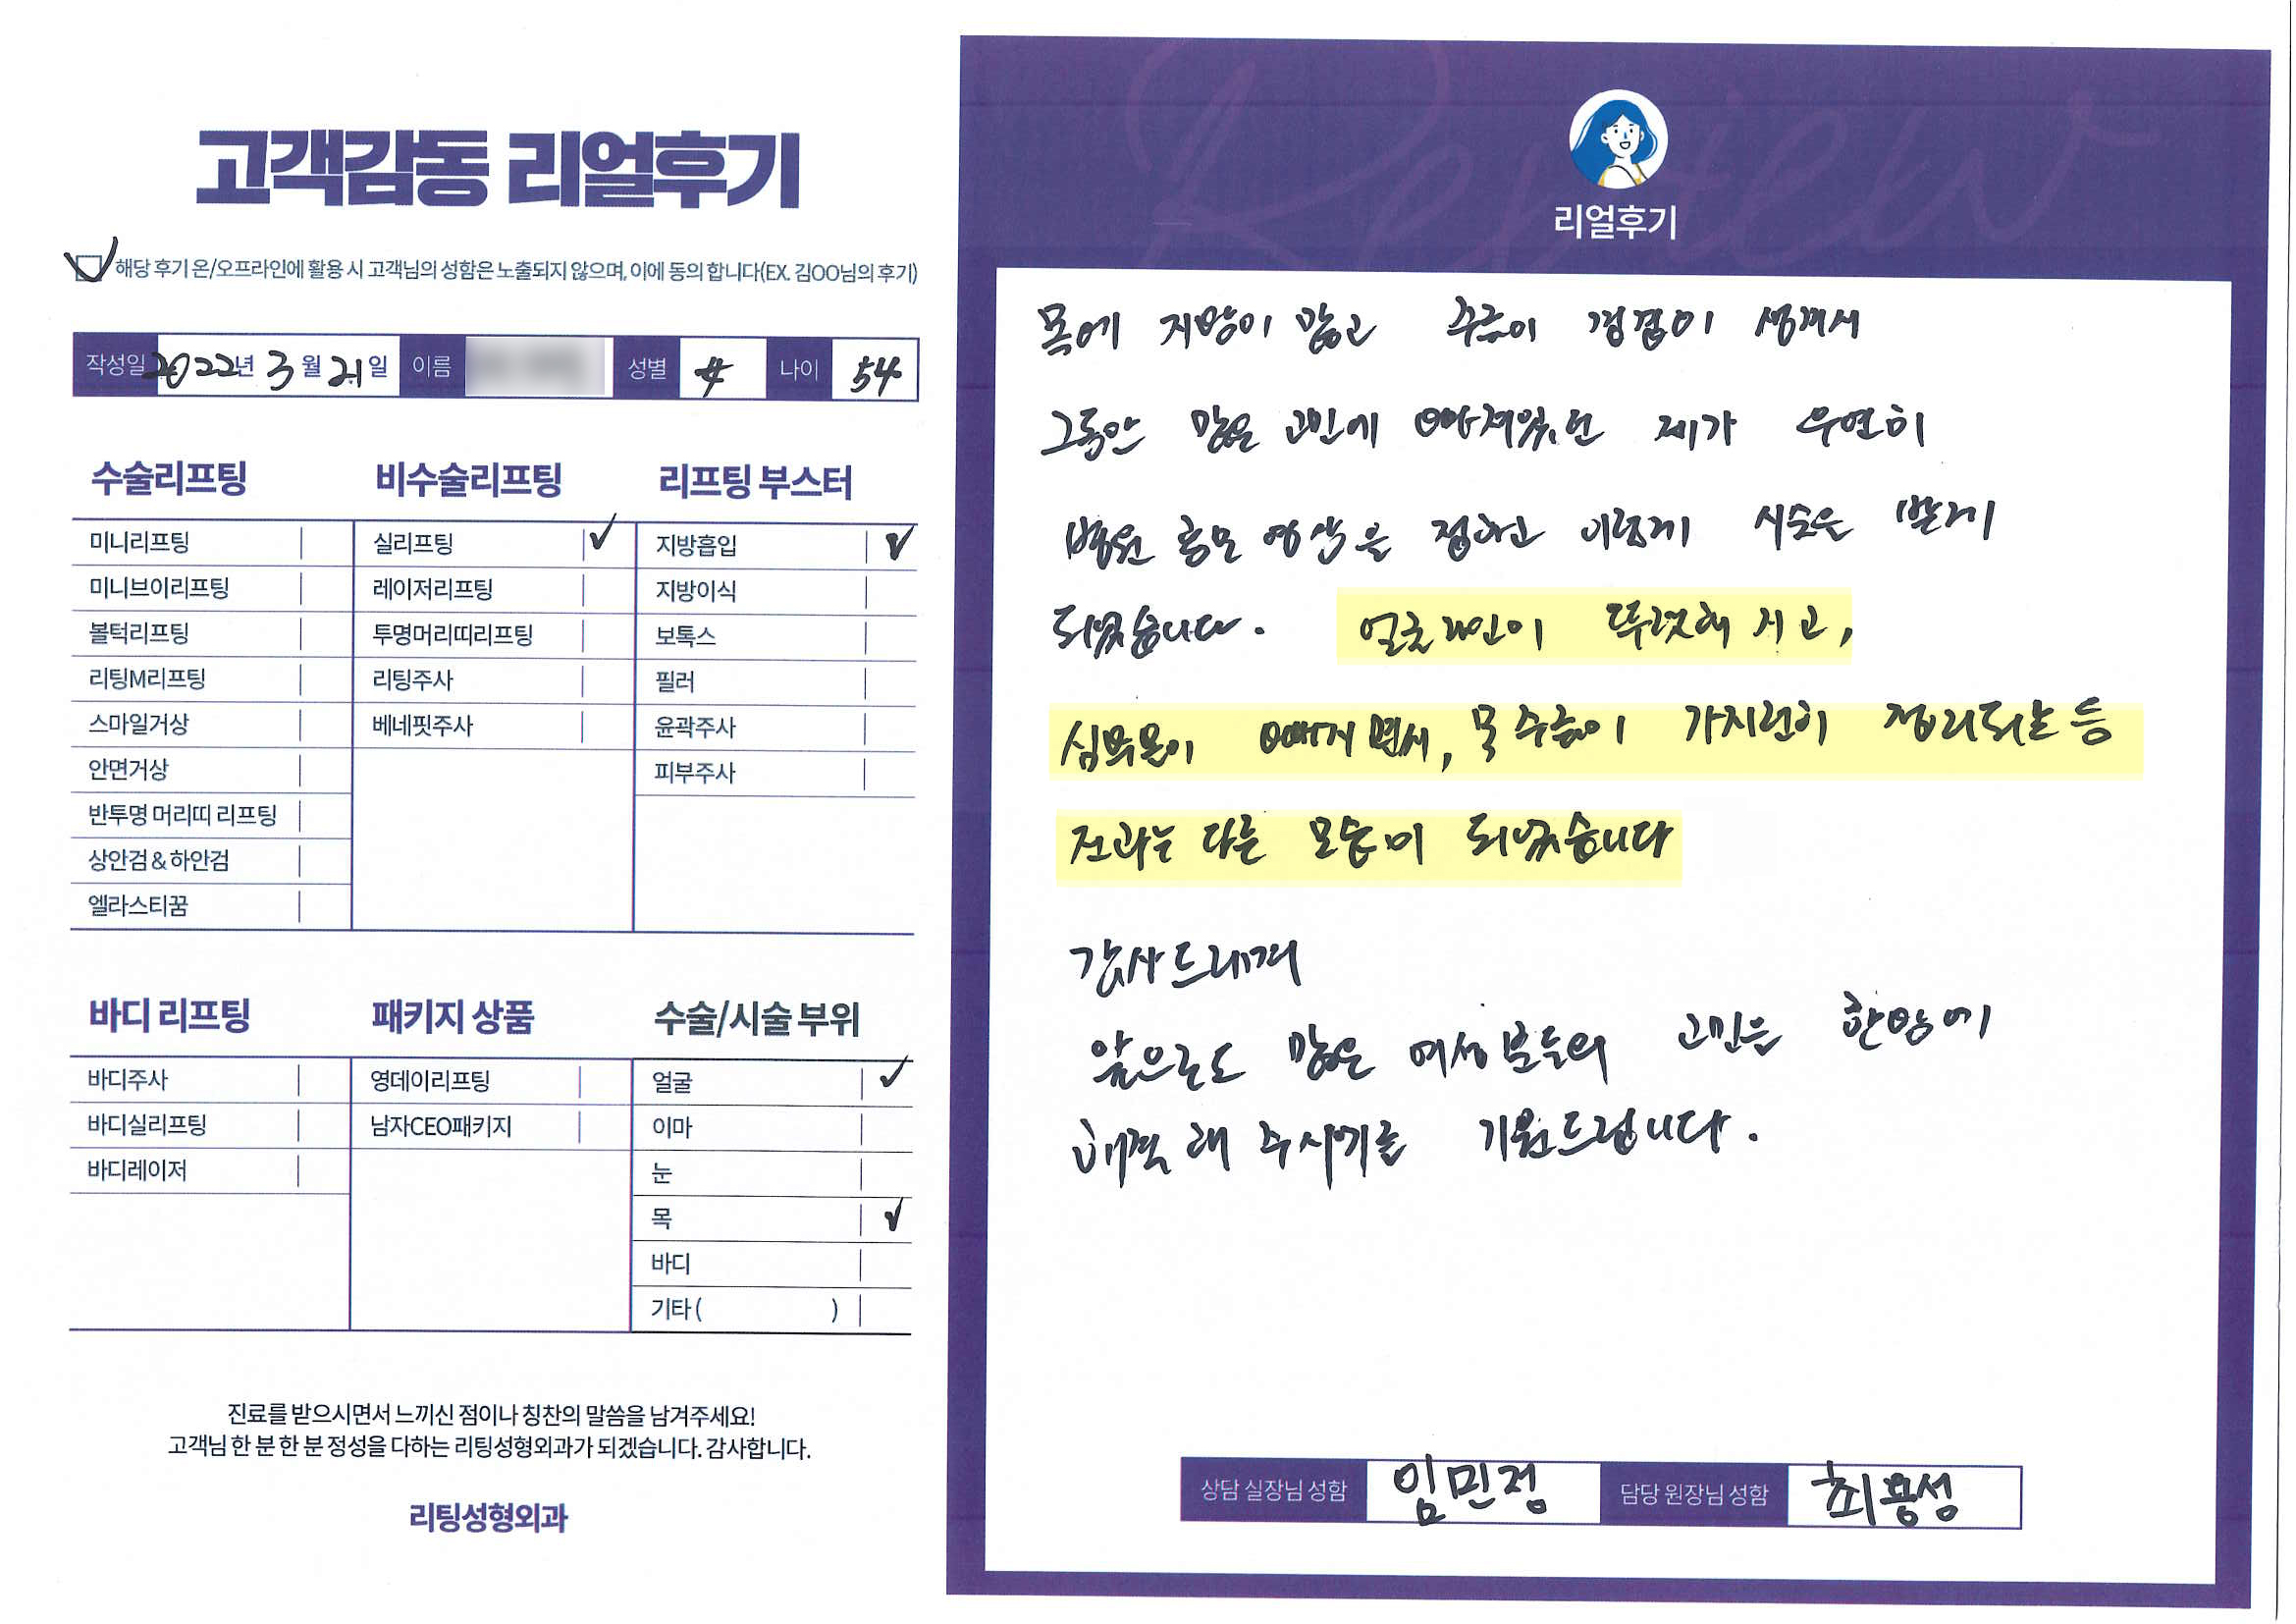 고객감동 리얼후기
해당 후기 온/오프라인에 활용 시 고객님의 성함은 노출되지 않으며, 이에 동의 합니다(EX. 김OO님의 후기)
작성일 2022년 3월 21일 이름 성별 여 나이 54
수술리프팅
미니리프팅
미니브이리프팅
볼턱리프팅
리팅M리프팅
스마일거상
안면거상
반투명 머리띠 리프팅
상안검 & 하안검
엘라스티꿈
비수술리프팅
실리프팅 ✓
레이저리프팅
투명머리띠리프팅
리팅주사
베네핏주사
리프팅 부스터
지방흡입 ✓
지방이식
보톡스
필러
윤곽주사
피부주사
바디 리프팅
바디주사
바디실리프팅
바디레이저
패키지 상품
영데이리프팅
남자CEO패키지
수술/시술 부위
얼굴 ✓
이마
눈
목 ✓
바디
기타 ( )
진료를 받으시면서 느끼신 점이나 칭찬의 말씀을 남겨주세요!
고객님 한 분 한 분 정성을 다하는 리팅성형외과가 되겠습니다. 감사합니다.
리팅성형외과
Review
리얼후기
목에 지방이 많고 주름이 겹겹이 생겨서
그동안 많은 고민에 빠져있던 제가 우연히
병원 홍보 영상을 접하고 이렇게 시술을 받게
되었습니다. 얼굴라인이 뚜렷해 지고,
심부볼이 빠지면서, 목주름이 가지런히 정리되는 등
전과는 다른 모습이 되었습니다
감사드리며
앞으로도 많은 여성분들의 고민을 한방에
해결해 주시기를 기원드립니다.
상담 실장님 성함 임민정 담당 원장님 성함 최용성